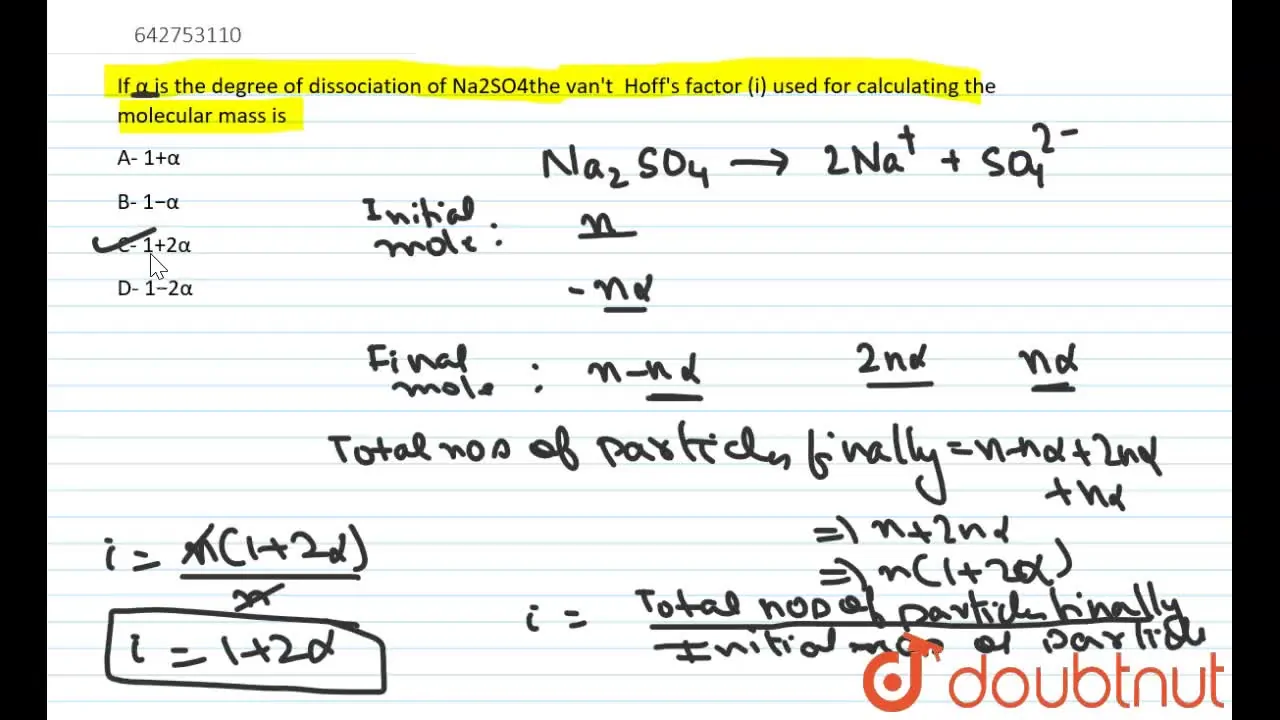 642753110
If α is the degree of dissociation of Na2SO4the van't Hoff's factor (i) used for calculating the
molecular mass is
A- 1+α
B- 1−α
C- 1+2α
D- 1−2α
Na₂SO₄ → 2Na⁺ + SO₄²⁻
Initial
mole : n
- nα
Final
mole : n - nα 2nα nα
Total nos of particles finally = n-nα+2nα
+ nα
=) n+2nα
=) n(1+2α)
i = n(1+2α)
n
i = 1+2α
i = Total nos of particles finally
Initial nos of particle
doubtnut